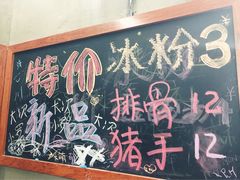 特价 冰粉3
新品 排骨12
猪手12